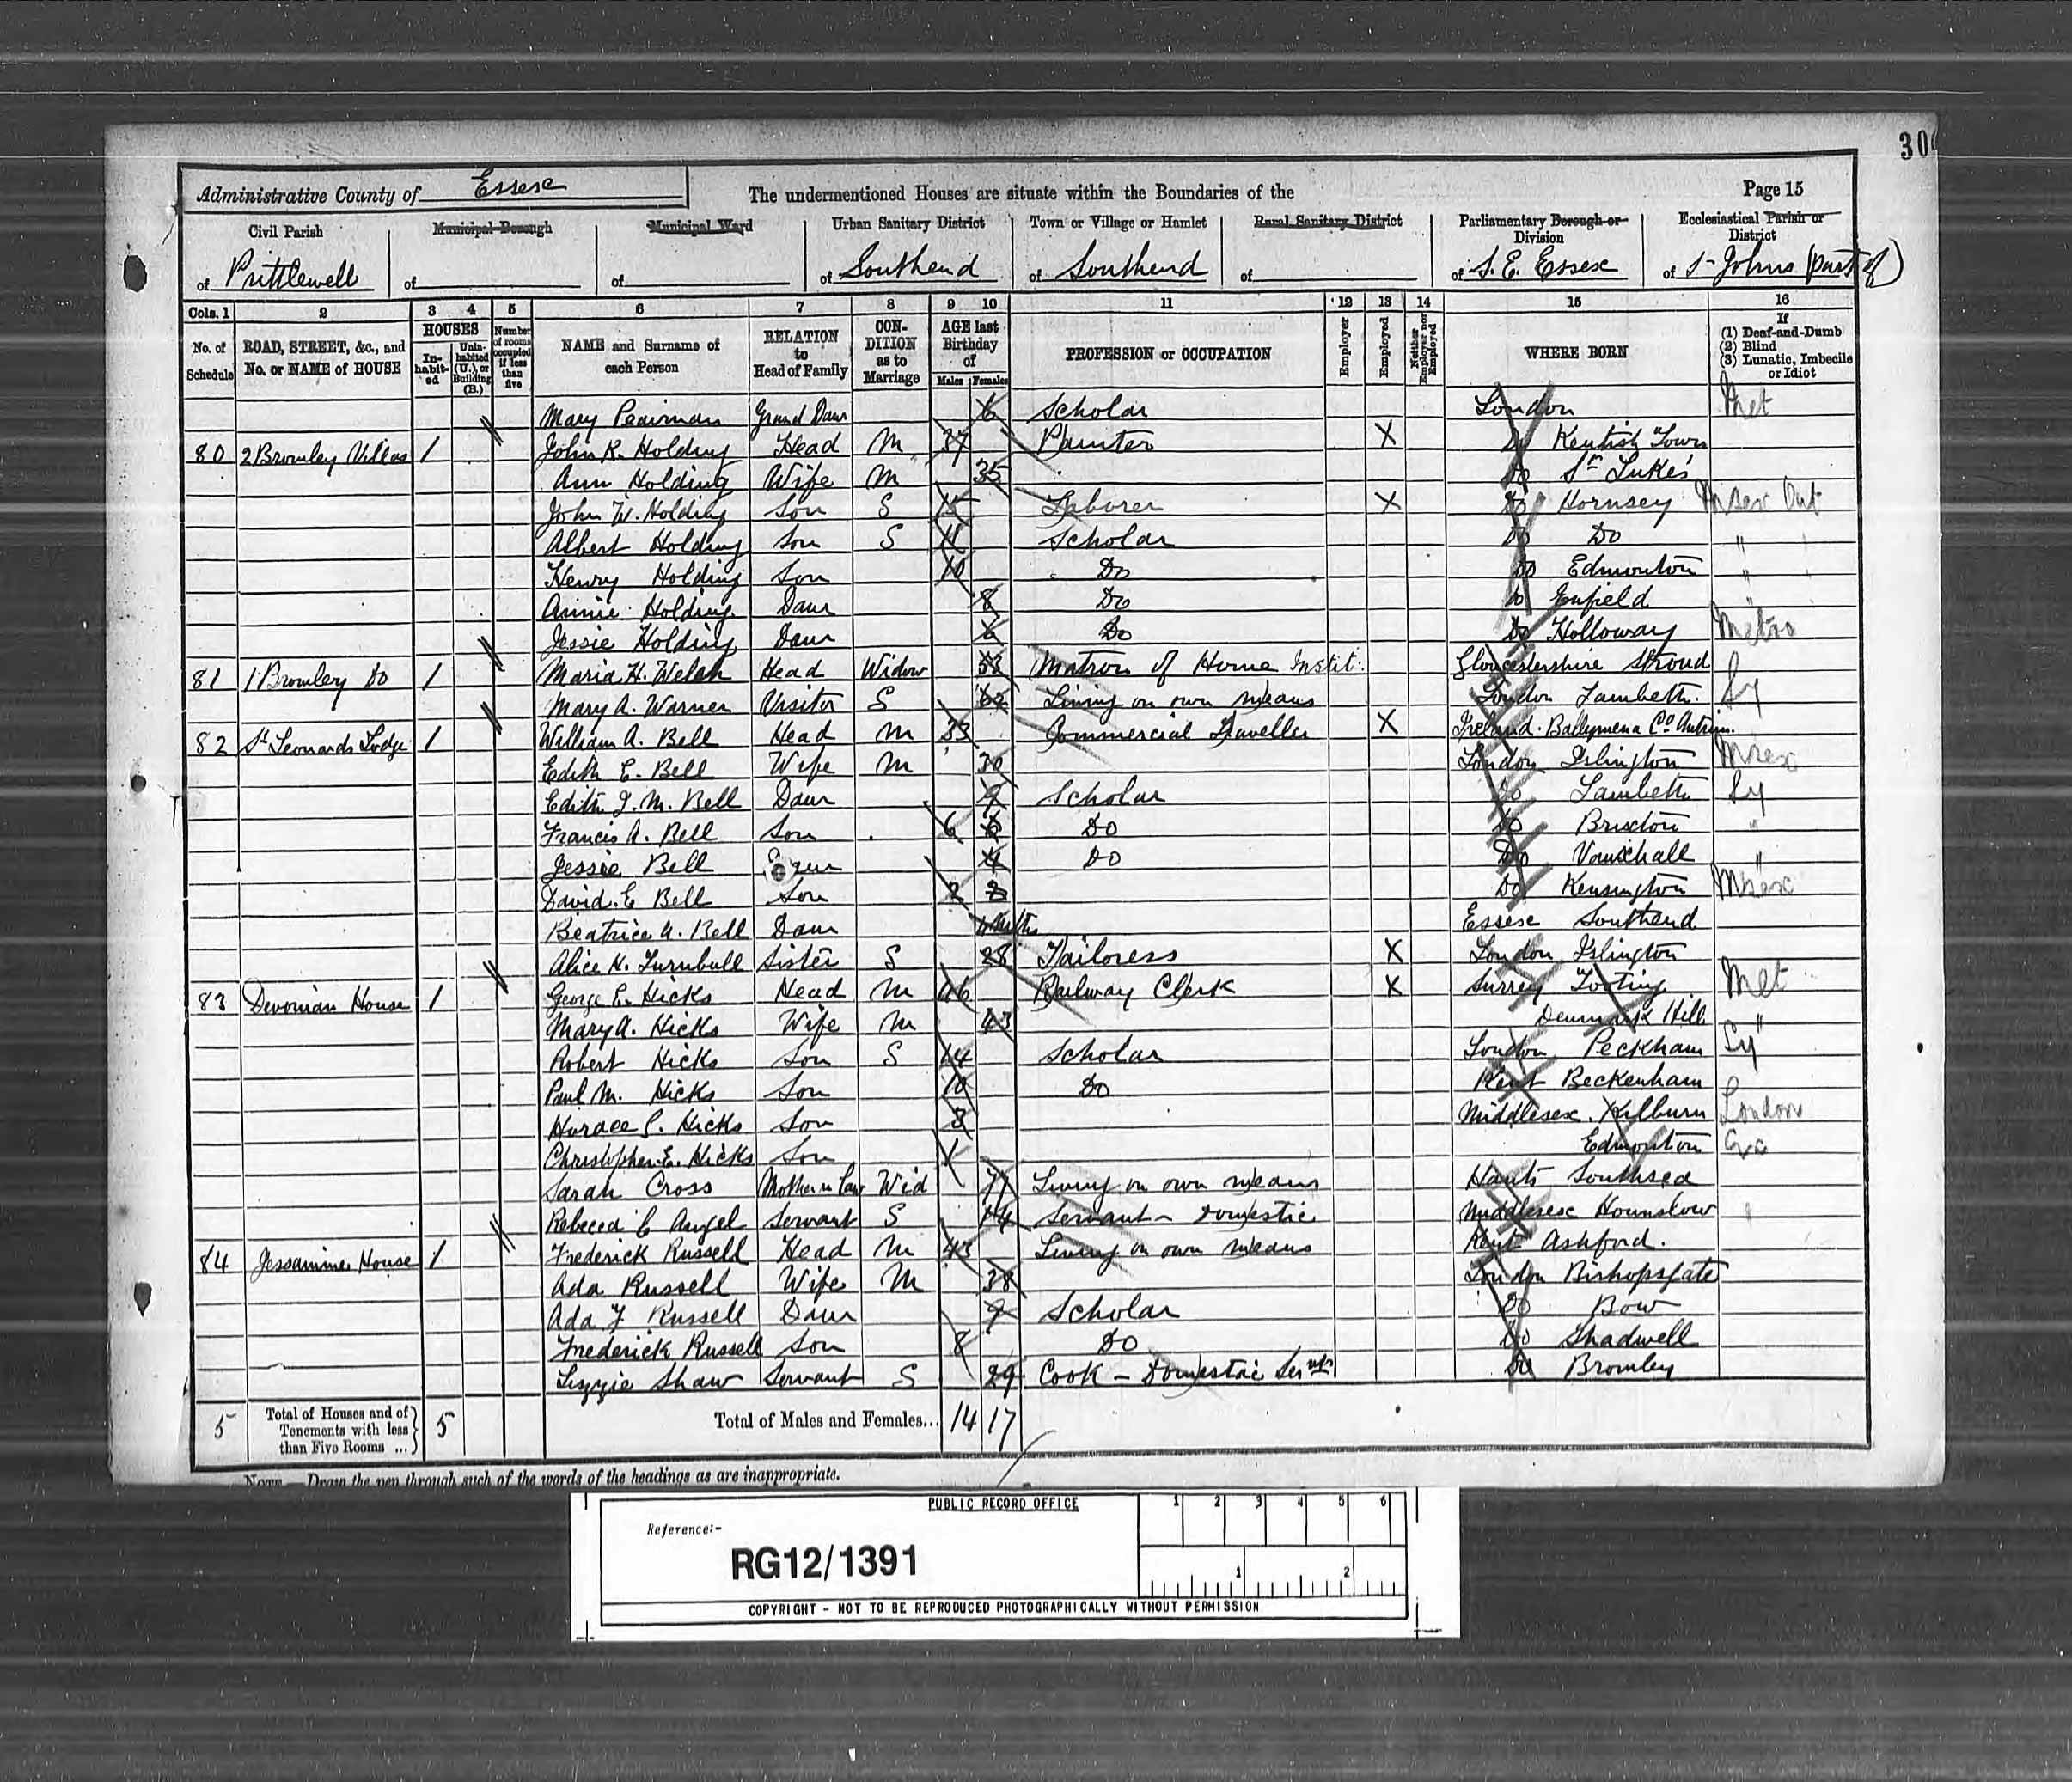 30
Administrative County of Essex The undermentioned Houses are situate within the Boundaries of the Page 15
Civil Parish of Prittlewell
Municipal Borough of
Municipal Ward of
Urban Sanitary District of Southend
Town or Village or Hamlet of Southend
Rural Sanitary District of
Parliamentary Borough or Division of S. E. Essex
Ecclesiastical Parish or District of St Johns (part of)
Cols. 1 2 3 4 5 6 7 8 9 10 11 12 13 14 15 16
No. of Schedule
ROAD, STREET, &c., and No. or NAME of HOUSE
HOUSES
In-habit-ed
Unin-habited (U.), or Building (B.)
Number of rooms occupied if less than five
NAME and Surname of each Person
RELATION to Head of Family
CON-DITION as to Marriage
AGE last Birthday of
Males Females
PROFESSION or OCCUPATION
Employer
Employed
Neither Employer nor Employed
WHERE BORN
If (1) Deaf-and-Dumb (2) Blind (3) Lunatic, Imbecile or Idiot
Mary Pearman Grand Daur 6 Scholar London Met
80 2 Bromley Villas 1 John R. Holding Head M 37 Painter X Do Kentish Town
Ann Holding Wife M 35 Do St Lukes
John W. Holding Son S 15 Laborer X Do Hornsey Msex Out
Albert Holding Son S 11 Scholar Do Do "
Henry Holding Son 10 Do Do Edmonton "
Annie Holding Daur 8 Do Do Enfield "
Jessie Holding Daur 6 Do Do Holloway Metro
81 1 Bromley Do 1 Maria H. Welsh Head Widow 53 Matron of Home Instit: Gloucestershire Stroud
Mary A. Warner Visitor S Living on own means London Lambeth Sy
82 St Leonards Lodge 1 William A. Bell Head M 33 Commercial Traveller X Ireland. Ballymena Co Antrim.
Edith E. Bell Wife M 30 London Islington Msex
Edith J. M. Bell Daur 9 Scholar Do Lambeth Sy
Francis A. Bell Son 6 Do Do Brixton "
Jessie Bell Daur 4 Do Do Vauxhall "
David E Bell Son 2 Do Kensington Msex
Beatrice A. Bell Daur Mths Essex Southend
Alice H. Turnbull Sister S 28 Tailoress X London Islington
83 Devonian House 1 George E. Hicks Head M 46 Railway Clerk X Surrey Tooting Met
Mary A. Hicks Wife M 43 Denmark Hill "
Robert Hicks Son S 14 Scholar London Peckham Sy
Paul M. Hicks Son 10 Do Kent Beckenham
Horace S. Hicks Son 3 Middlesex. Kilburn London
Christopher E. Hicks Son 1 Edmonton
Sarah Cross Mother in Law Wid 71 Living on own means Hants Southsea
Rebecca E Angel Servant S 14 Servant - Domestic Middlesex Hounslow
84 Jessamine House 1 Frederick Russell Head M 43 Living on own means Kent Ashford.
Ada Russell Wife M 38 London Bishopsgate
Ada F Russell Daur 9 Scholar Do Bow
Frederick Russell Son 8 Do Do Shadwell
Lizzie Shaw Servant S 29 Cook - Domestic Servt Do Bromley
5 Total of Houses and of Tenements with less than Five Rooms ... 5 Total of Males and Females... 14 17
NOTE.—Draw the pen through such of the words of the headings as are inappropriate.
PUBLIC RECORD OFFICE 1 2 3 4 5 6
Reference:-
RG12/1391
1 2
COPYRIGHT - NOT TO BE REPRODUCED PHOTOGRAPHICALLY WITHOUT PERMISSION